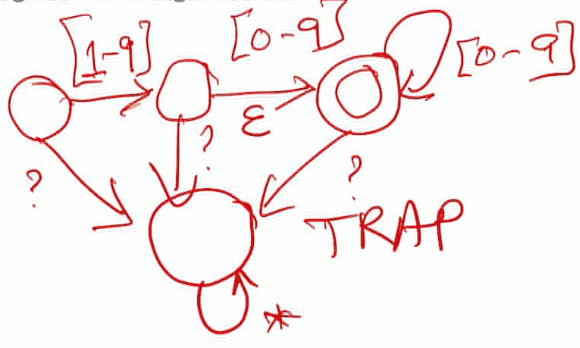 [1-9] [0-9]
[0-9]
ε
?
? ?
TRAP
*